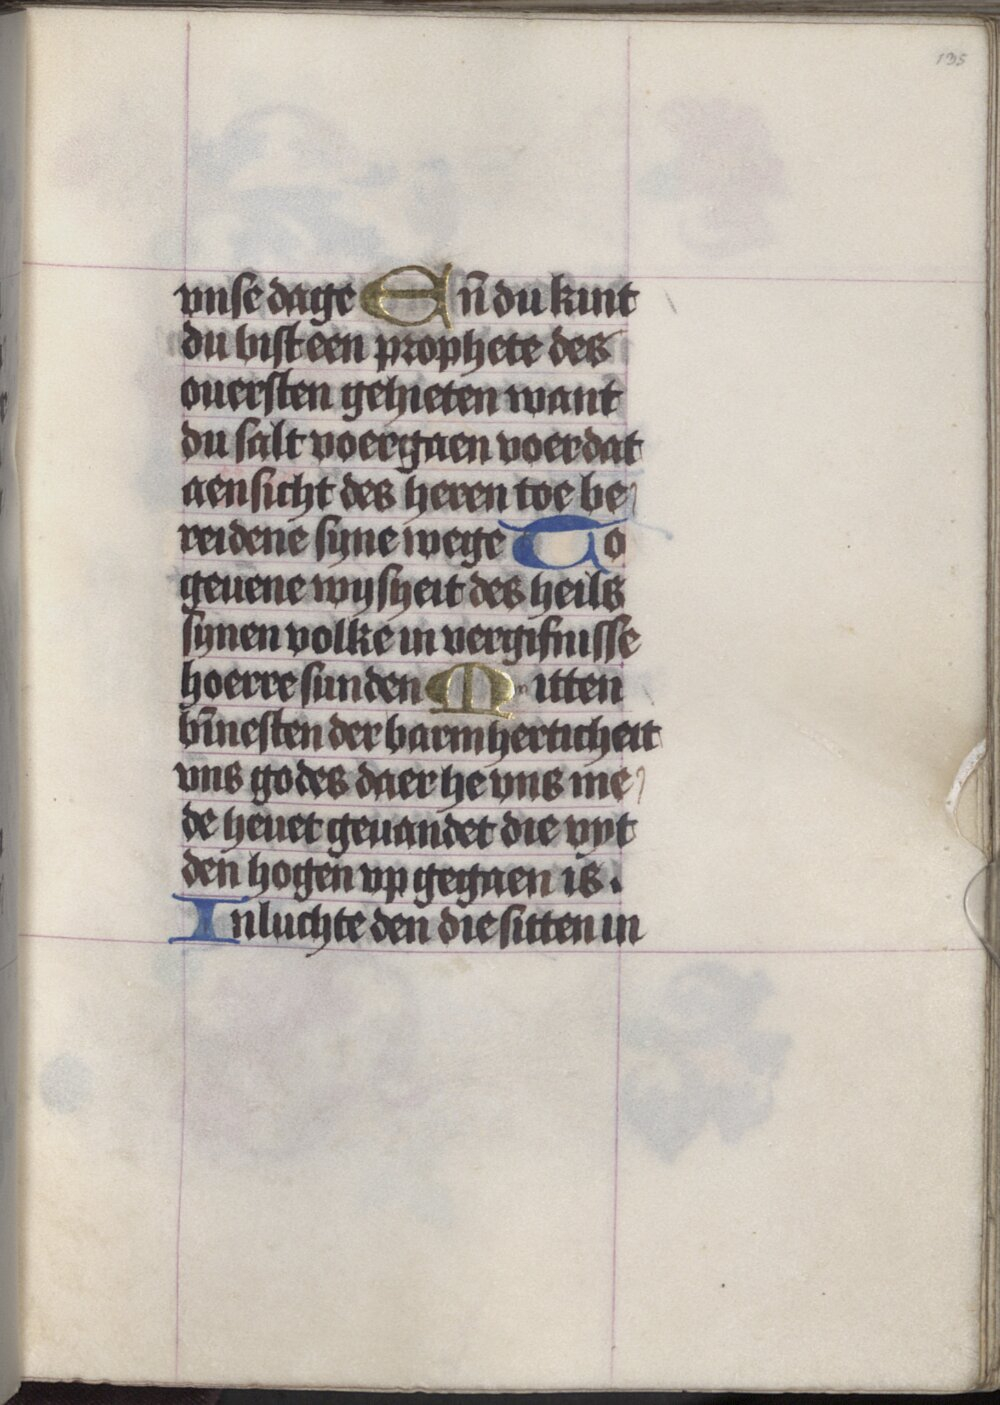 135
vnse dage Eñ du kint
du bist een prophete des
ouersten gehieten want
du salt voergaen voer dat
aensicht des heren toe be
reidene syne wege To
geuene wysheit des heils
synen volke in vergifnisse
hoerre sunden Mitten
bīnesten der barmherticheit
vns godes daer he vns me
de heuet geuandet die vyt
den hogen vp gegaen is.
Inluchte den die sitten in